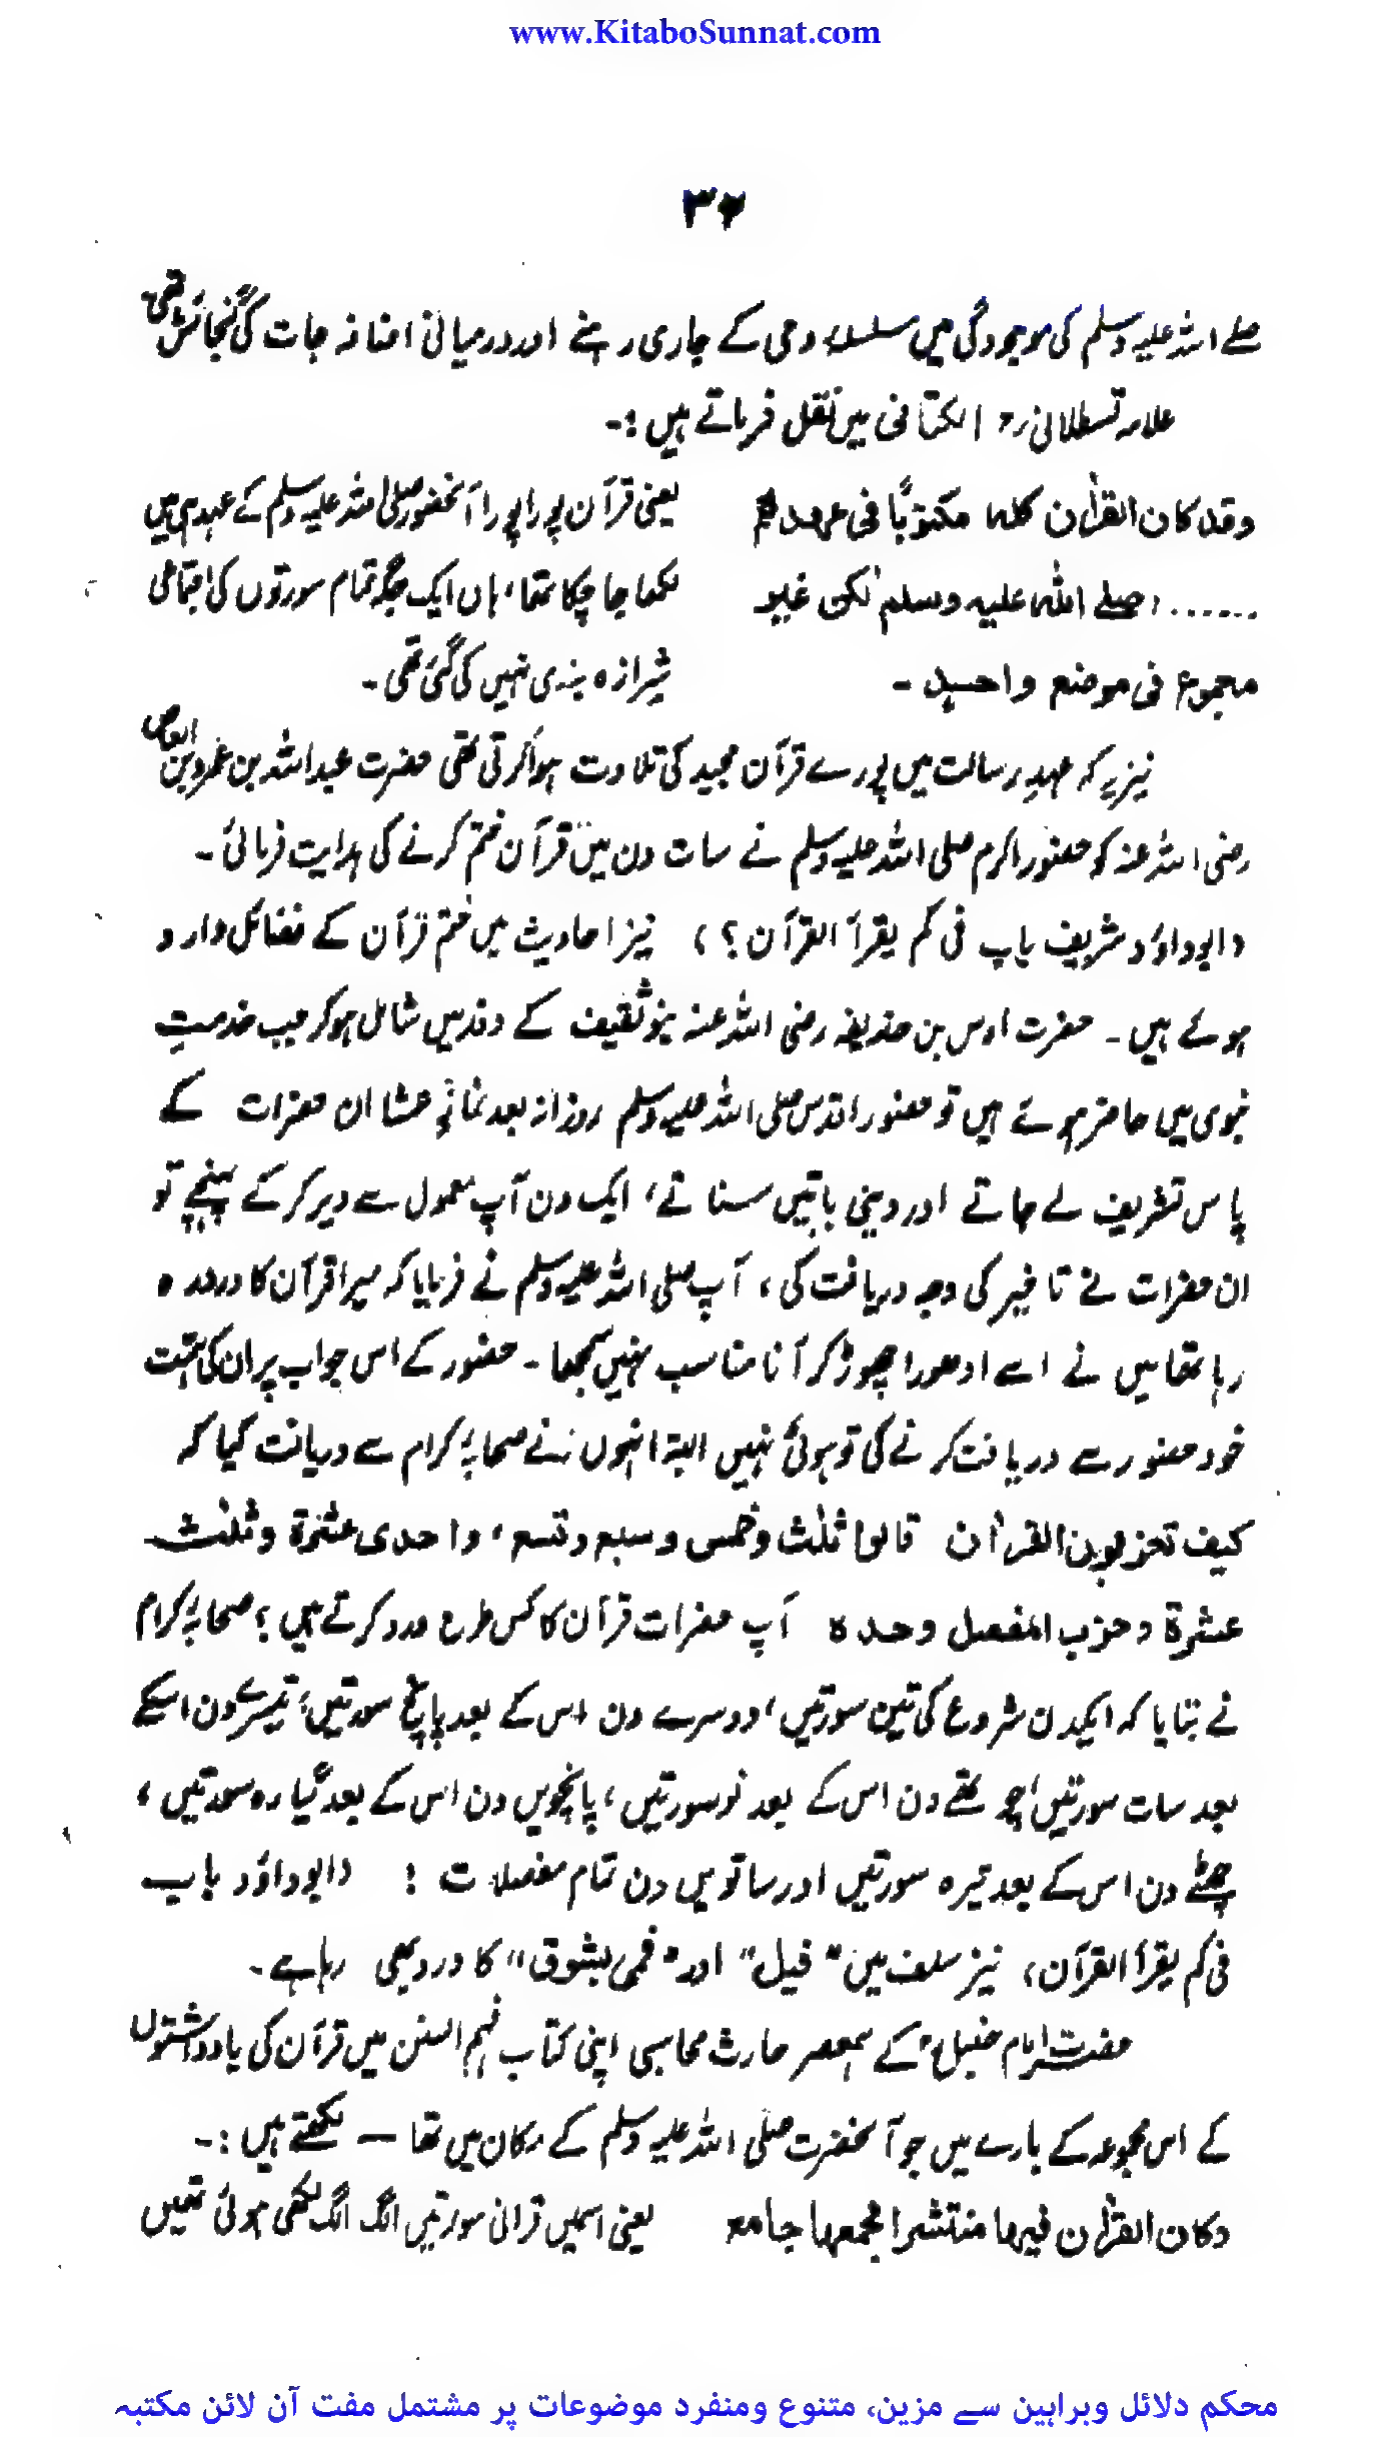 www.KitaboSunnat.com
۳۶
صلے اللہ علیہ وسلم کی موجودگی میں سلسلۂ وحی کے جاری رہنے اور درمیانی اضافہ جات کی گنجائش تھی
علامہ قسطلانی رح الکتانی میں نقل فرماتے ہیں :-
وقد کان القراٰن کلہ مکتوبًا فی عہدہ یعنی قرآن پورا پورا آنحضور صلی اللہ علیہ وسلم کے عہد ہی میں
...... صلے اللہ علیہ وسلم لٰکن غیر لکھا جا چکا تھا، ہاں ایک جگہ تمام سورتوں کی اجتماعی
مجموع فی موضع واحد - شیرازہ بندی نہیں کی گئی تھی -
نیز یہ کہ عہدِ رسالت میں پورے قرآن مجید کی تلاوت ہوا کرتی تھی حضرت عبداللہ بن عمرو بن العاص
رضی اللہ عنہ کو حضور اکرم صلی اللہ علیہ وسلم نے سات دن میں قرآن ختم کرنے کی ہدایت فرمائی -
(ابوداؤد شریف باب فی کم یقرأ القرآن؟) نیز احادیث میں ختم قرآن کے فضائل وارد
ہوئے ہیں - حضرت اوس بن حذیفہ رضی اللہ عنہ بنو ثقیف کے وفد میں شامل ہو کر جب خدمتِ
نبوی میں حاضر ہوئے ہیں تو حضور اقدس صلی اللہ علیہ وسلم روزانہ بعد نمازِ عشا ان حضرات کے
پاس تشریف لے جاتے اور دینی باتیں سناتے، ایک دن آپ معمول سے دیر کر کے پہنچے تو
ان حضرات نے تاخیر کی وجہ دریافت کی، آپ صلی اللہ علیہ وسلم نے فرمایا کہ میرا قرآن کا ورد رہ
رہا تھا میں نے اسے ادھورا چھوڑ کر آنا مناسب نہیں سمجھا - حضور کے اس جواب پر ان کی ہمت
خود حضور سے دریافت کرنے کی تو ہوئی نہیں البتہ انہوں نے صحابۂ کرام سے دریافت کیا کہ
کیف تحزبون القراٰن قالوا ثلٰث وخمس وسبع وتسع، واحدی عشرۃ وثلٰث
عشرۃ وحزب المفصل وحدہ آپ حضرات قرآن کا کس طرح ورد کرتے ہیں؟ صحابۂ کرام
نے بتایا کہ ایکدن شروع کی تین سورتیں، دوسرے دن اس کے بعد پانچ سورتیں، تیسرے دن اسکے
بعد سات سورتیں، چوتھے دن اس کے بعد نو سورتیں، پانچویں دن اس کے بعد گیارہ سورتیں،
چھٹے دن اس کے بعد تیرہ سورتیں اور ساتویں دن تمام مفصلات ! (ابوداؤد باب
فی کم یقرأ القرآن) نیز سلف میں "فیل" اور "فمی بشوق" کا ورد بھی رہا ہے -
حضرت امام حنبل رح کے ہمعصر حارث محاسبی اپنی کتاب فہم السنن میں قرآن کی یادداشتوں
کے اس مجموعہ کے بارے میں جو آنحضرت صلی اللہ علیہ وسلم کے مکان میں تھا — لکھتے ہیں :-
وکان القراٰن فیہا منتشرا فجمعہا جامع یعنی اسمیں قرآنی سورتیں الگ الگ لکھی ہوئی تھیں
محکم دلائل وبراہین سے مزین، متنوع ومنفرد موضوعات پر مشتمل مفت آن لائن مکتبہ